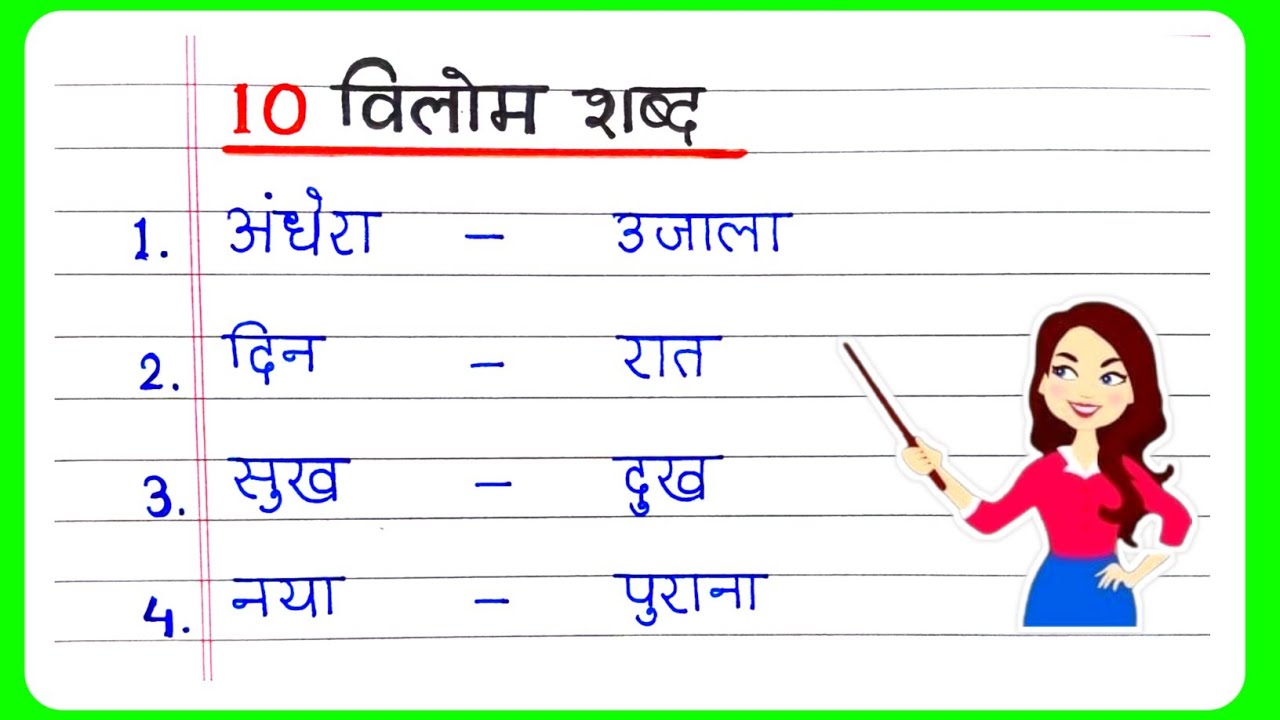 10 विलोम शब्द
1. अंधेरा – उजाला
2. दिन – रात
3. सुख – दुख
4. नया – पुराना